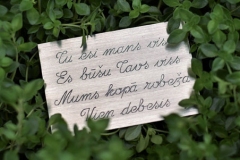 Tu esi mans viss
Es būšu Tavs viss
Mums kopā robeža
Vien debesis